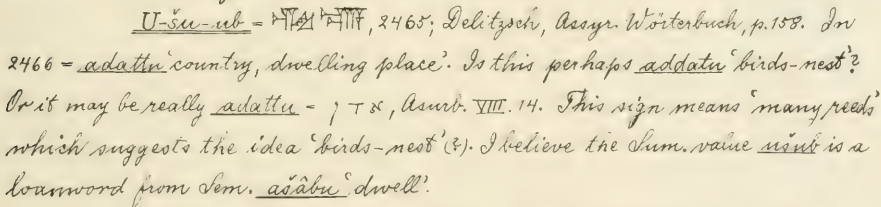 U-šu-ub = , 2465; Delitzsch, Assyr. Wörterbuch, p.158. In
2466 = adattu 'country, dwelling place'. Is this perhaps addatu 'birds-nest'?
Or it may be really adattu - , Asurb. VIII. 14. This sign means 'many reeds'
which suggests the idea 'birds-nest' (?). I believe the Sum. value ušub is a
loanword from Sem. ašâbu 'dwell'.